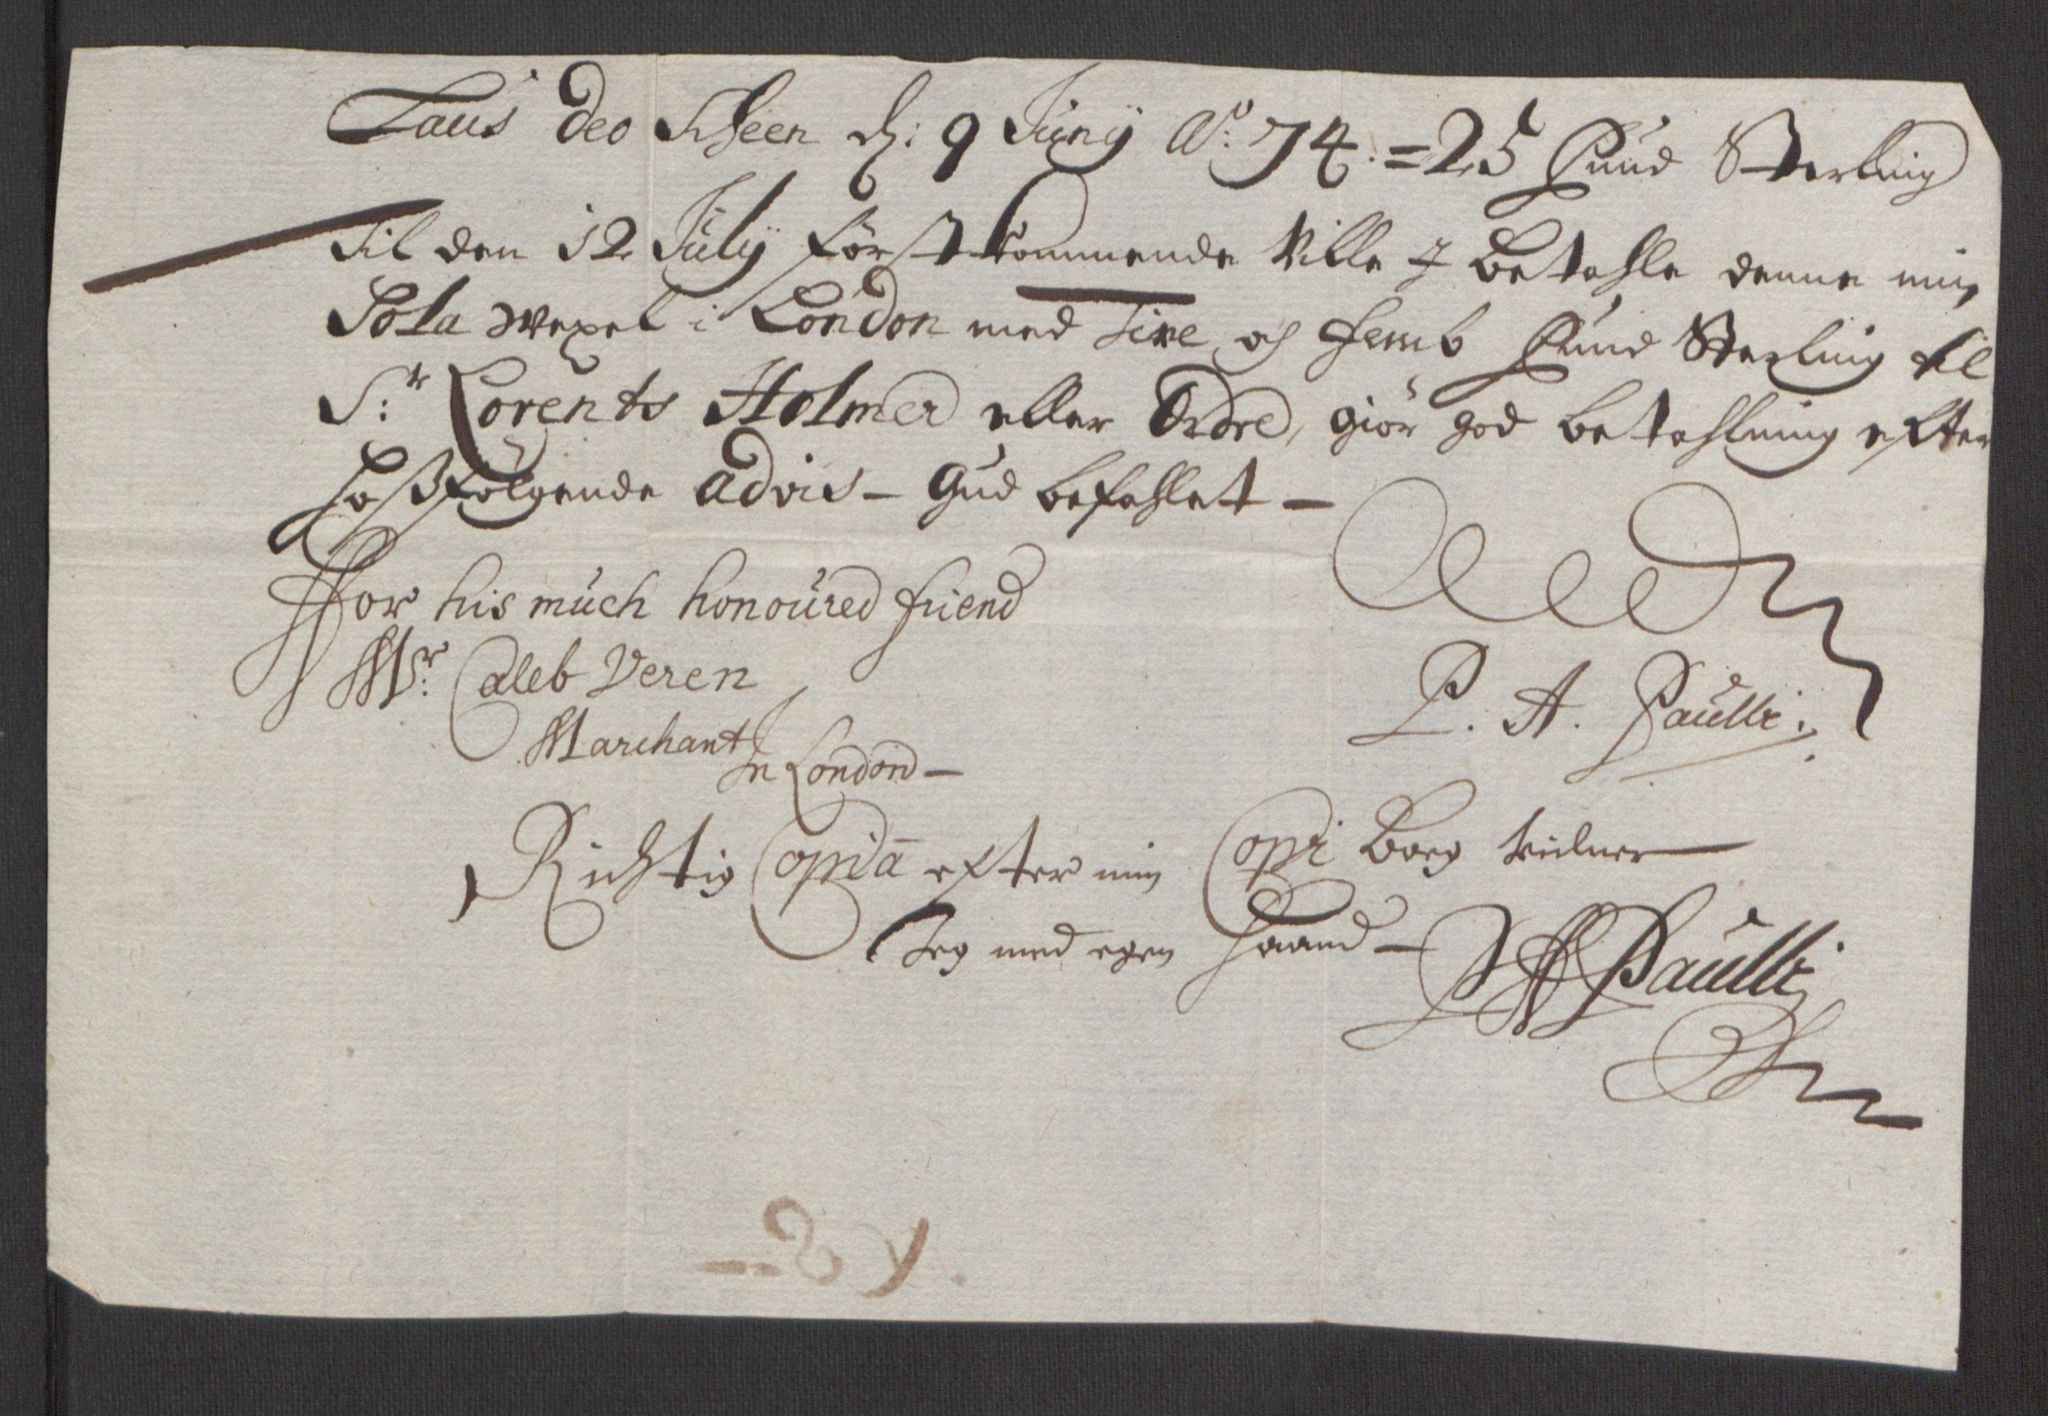 Laus Deo Scheen d: 9 Junÿ Aº: 74. = 25 Pund Sterling
Til den 12 Julÿ förstkommende Ville I betahle denne min
Sola wexel i London med Tive och femb Pund Sterling til
S:r Lorents Holmer eller Ordre, giör god betahlning efter
hoßfölgende advis – Gud befahlet –
For his much honoured friend
Mr: Caleb Veren
Marchant
In London –
P. A. Paulli.
Richtig Copia efter min Copi Boeg vidner
Jeg med egen Haand –
PA Paulli